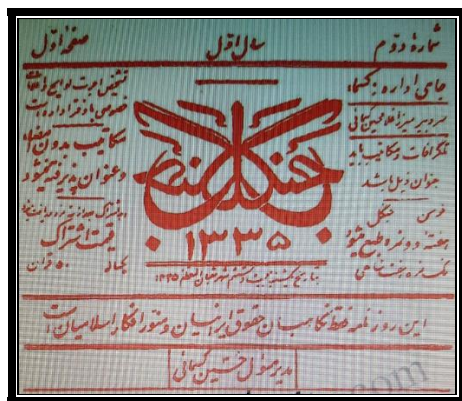 شمارهٔ دوم
سال اول
صفحه اول
جای اداره: کسما
سردبیر میرزا غلامحسین کسمائی
تلگرافات و مکاتیب باید
بعنوان ذیل باشد
فومن جنگل
هفته دو نمره طبع میشود
تک نمره هفت شاهی
جنگل
۱۳۳۵
مکاتیب بدون امضاء
و عنوان پذیرفته نمیشود
قیمت اشتراک
یکساله ۵۰ قران
این روزنامه فقط نگاهبان حقوق ایرانیان و منور افکار اسلامیان است
مدیر مسئول حسین کسمائی
.com